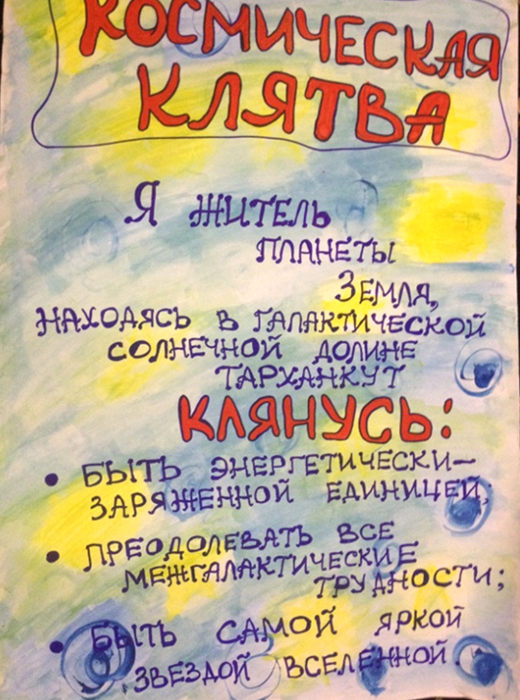 КОСМИЧЕСКАЯ
КЛЯТВА
Я ЖИТЕЛЬ
ПЛАНЕТЫ
ЗЕМЛЯ,
НАХОДЯСЬ В ГАЛАКТИЧЕСКОЙ
СОЛНЕЧНОЙ ДОЛИНЕ
ТАРХАНКУТ
КЛЯНУСЬ:
• БЫТЬ ЭНЕРГЕТИЧЕСКИ-
ЗАРЯЖЕННОЙ ЕДИНИЦЕЙ;
• ПРЕОДОЛЕВАТЬ ВСЕ
МЕЖГАЛАКТИЧЕСКИЕ
ТРУДНОСТИ;
• БЫТЬ САМОЙ ЯРКОЙ
ЗВЕЗДОЙ ВСЕЛЕННОЙ.